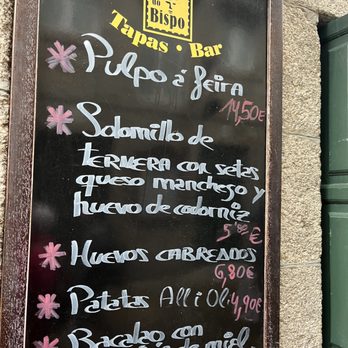 do
Bispo
Tapas • Bar
Pulpo á feira
14,50€
Solomillo de
TERNERA con setas
queso manchego y
huevo de codorniz
5,80€
HUEVOS CABREADOS
6,80€
Patatas All i Oli 4,90€
Bacalao con
de miel